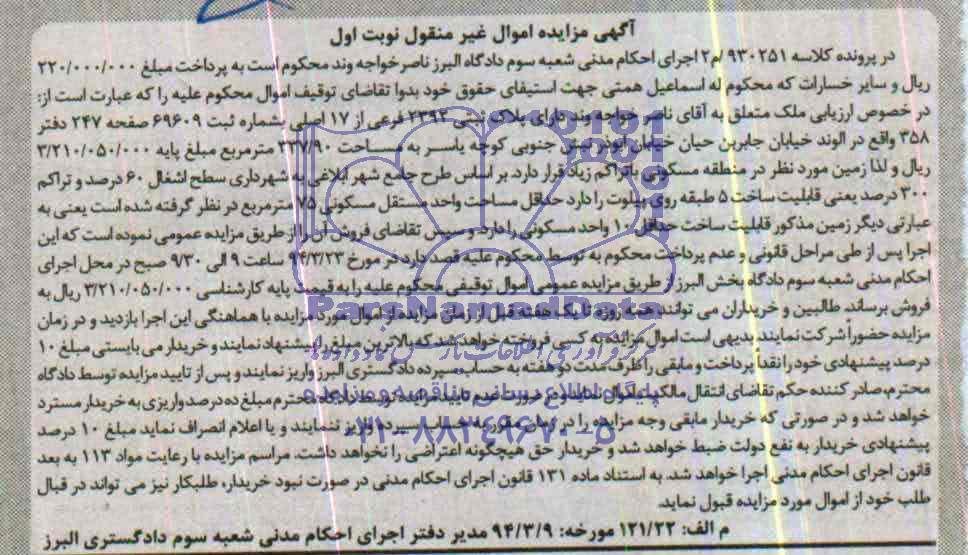 آگهی مزایده اموال غیر منقول نوبت اول
در پرونده کلاسه ۹۳۰۲۵۱ /م۲ اجرای احکام مدنی شعبه سوم دادگاه البرز ناصر خواجه وند محکوم است به پرداخت مبلغ ۲۲۰/۰۰۰/۰۰۰
ریال و سایر خسارات که محکوم له اسماعیل همتی جهت استیفای حقوق خود بدوا تقاضای توقیف اموال محکوم علیه را که عبارت است از:
در خصوص ارزیابی ملک متعلق به آقای ناصر خواجه وند دارای پلاک ثبتی ۲۳۹۲ فرعی از ۱۷ اصلی بشماره ثبت ۶۹۶۰۹ صفحه ۲۴۷ دفتر
۳۵۸ واقع در الوند خیابان جابربن حیان خیابان ابوذر نبش جنوبی کوچه یاسر به مساحت ۳۳۷/۹۰ مترمربع مبلغ پایه ۳/۲۱۰/۰۵۰/۰۰۰
ریال و لذا زمین مورد نظر در منطقه مسکونی باتراکم زیاد قرار دارد. بر اساس طرح جامع شهر ابلاغی به شهرداری سطح اشغال ۶۰ درصد و تراکم
۳۰۰ درصد یعنی قابلیت ساخت ۵ طبقه روی پیلوت را دارد حداقل مساحت واحد مستقل مسکونی ۷۵ مترمربع در نظر گرفته شده است یعنی به
عبارتی دیگر زمین مذکور قابلیت ساخت حداقل ۱۰ واحد مسکونی را دارد و سپس تقاضای فروش آن را از طریق مزایده عمومی نموده است که این
اجرا پس از طی مراحل قانونی و عدم پرداخت محکوم به توسط محکوم علیه قصد دارد در مورخ ۹۴/۳/۲۳ ساعت ۹ الی ۹/۳۰ صبح در محل اجرای
احکام مدنی شعبه سوم دادگاه بخش البرز از طریق مزایده عمومی اموال توقیفی محکوم علیه را به قیمت پایه کارشناسی ۳/۲۱۰/۰۵۰/۰۰۰ ریال به
فروش برساند. طالبین و خریداران می توانند همه روزه تا یک هفته قبل از زمان مزایده از اموال مورد مزایده با هماهنگی این اجرا بازدید و در زمان
مزایده حضوراً شرکت نمایند. بدیهی است اموال مزایده به کسی فروخته خواهد شد که بالاترین مبلغ را پیشنهاد نمایند و خریدار می بایستی مبلغ ۱۰
درصد پیشنهادی خود را نقداً پرداخت و مابقی را ظرف مدت دو هفته به حساب سپرده دادگستری البرز واریز نمایند و پس از تایید مزایده توسط دادگاه
محترم صادر کننده حکم تقاضای انتقال مالکیت اموال نمایند و در صورت عدم تایید مزایده توسط دادگاه محترم مبلغ ده درصد واریزی به خریدار مسترد
خواهد شد و در صورتی که خریدار مابقی وجه مزایده را در زمان مقرر به حساب سپرده واریز ننمایند و یا اعلام انصراف نماید مبلغ ۱۰ درصد
پیشنهادی خریدار به نفع دولت ضبط خواهد شد و خریدار حق هیچگونه اعتراضی را نخواهد داشت. مراسم مزایده با رعایت مواد ۱۱۳ به بعد
قانون اجرای احکام مدنی اجرا خواهد شد. به استناد ماده ۱۳۱ قانون اجرای احکام مدنی در صورت نبود خریدار، طلبکار نیز می تواند در قبال
طلب خود از اموال مورد مزایده قبول نماید.
م الف: ۱۲۱/۲۲ مورخه: ۹۴/۳/۹ مدیر دفتر اجرای احکام مدنی شعبه سوم دادگستری البرز
ParsNamadData
مرکز فرآوری اطلاعات پارس نماد داده ها
پایگاه اطلاع رسانی مناقصه و مزایده
۰۲۱-۸۸۳۴۹۶۷۰-۵